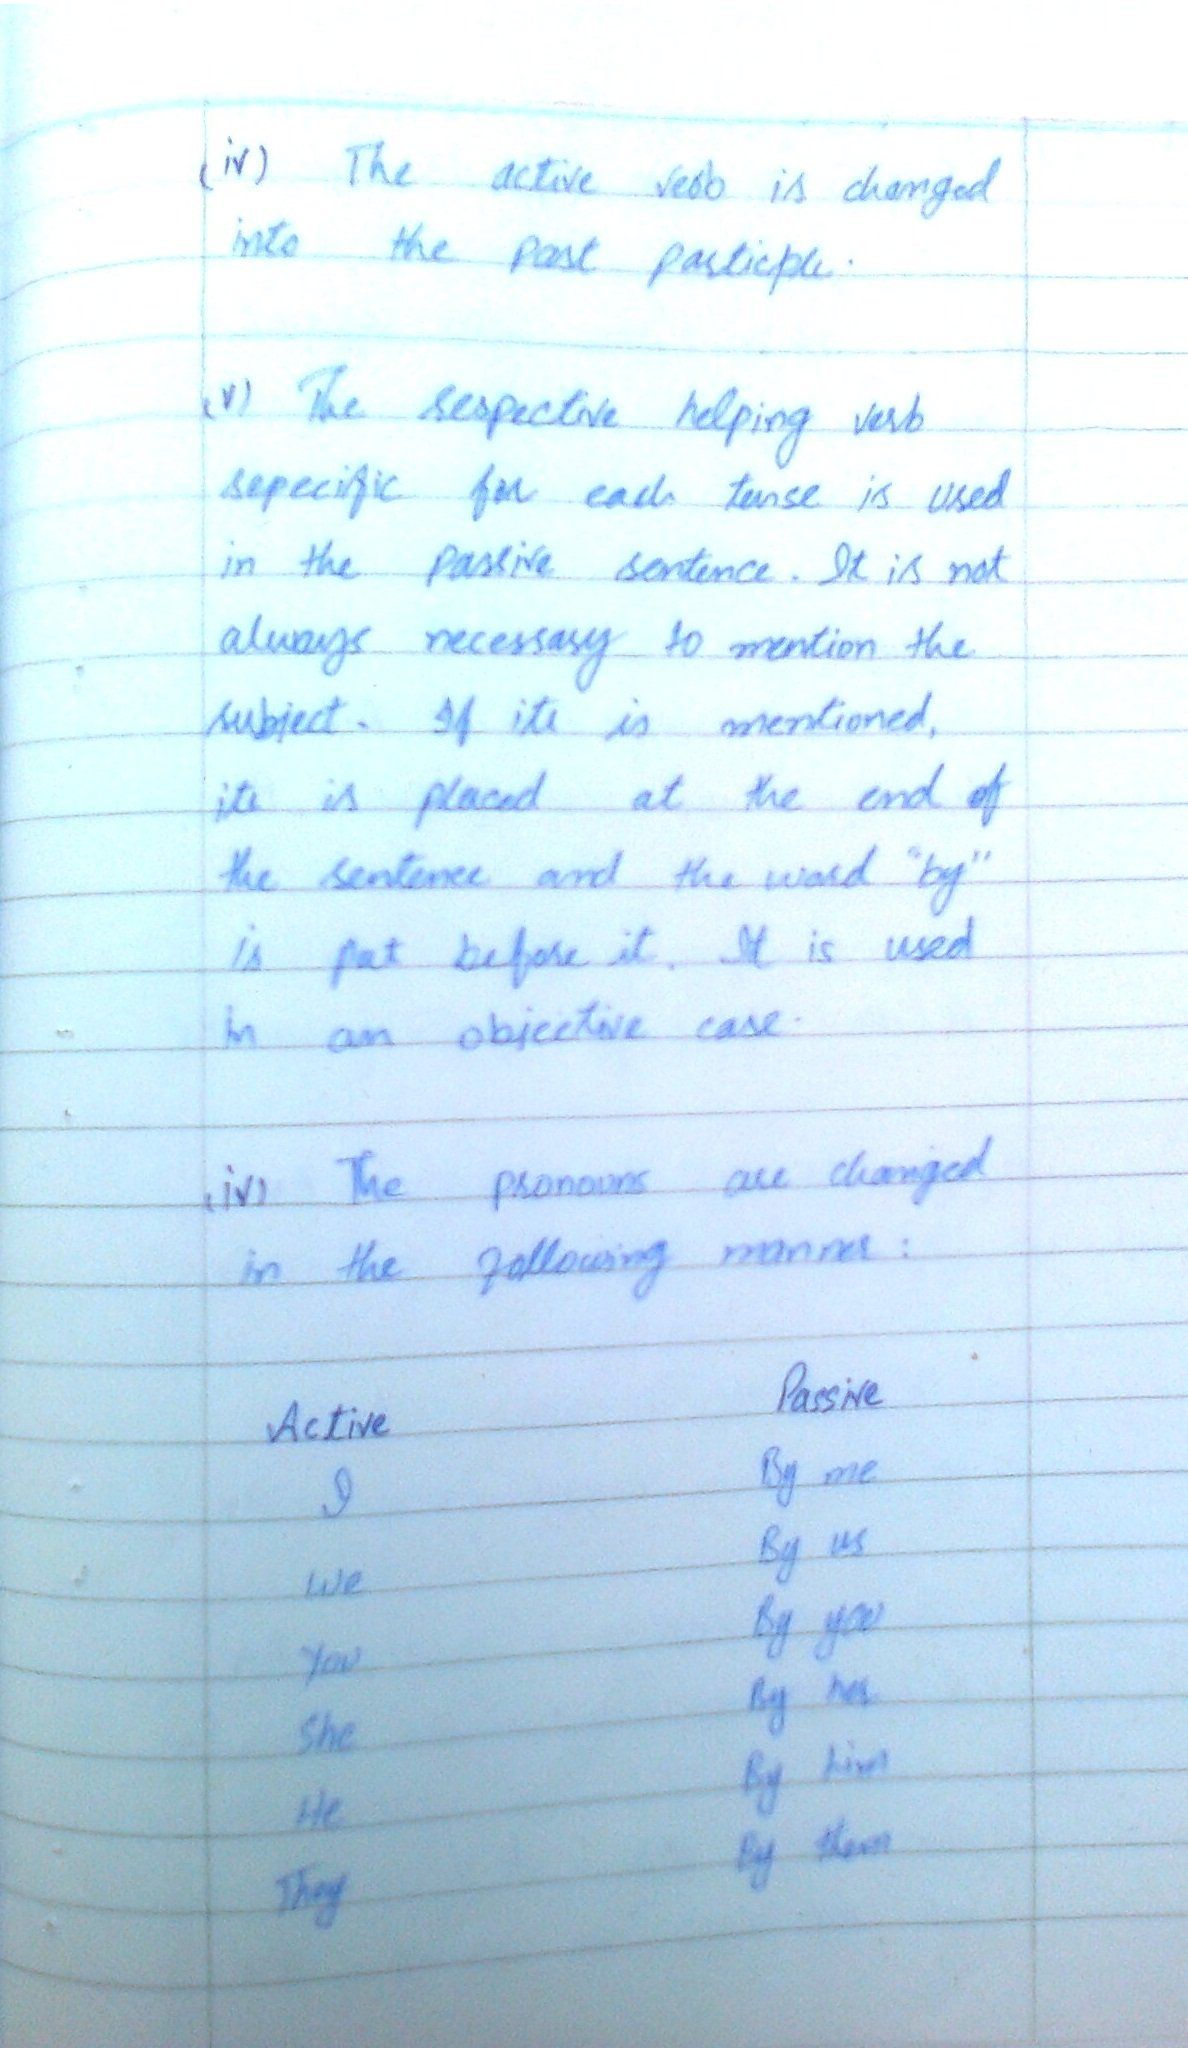 (iv) The active verb is changed
into the past participle.
(v) The respective helping verb
sepecific for each tense is used
in the passive sentence. It is not
always necessary to mention the
subject. If ite is mentioned,
ite is placed at the end of
the sentence and the word "by"
is put before it. It is used
in an objective case.
(iv) The pronouns are changed
in the following manner:
Active Passive
I By me
We By us
You By you
She By her
He By him
They By them